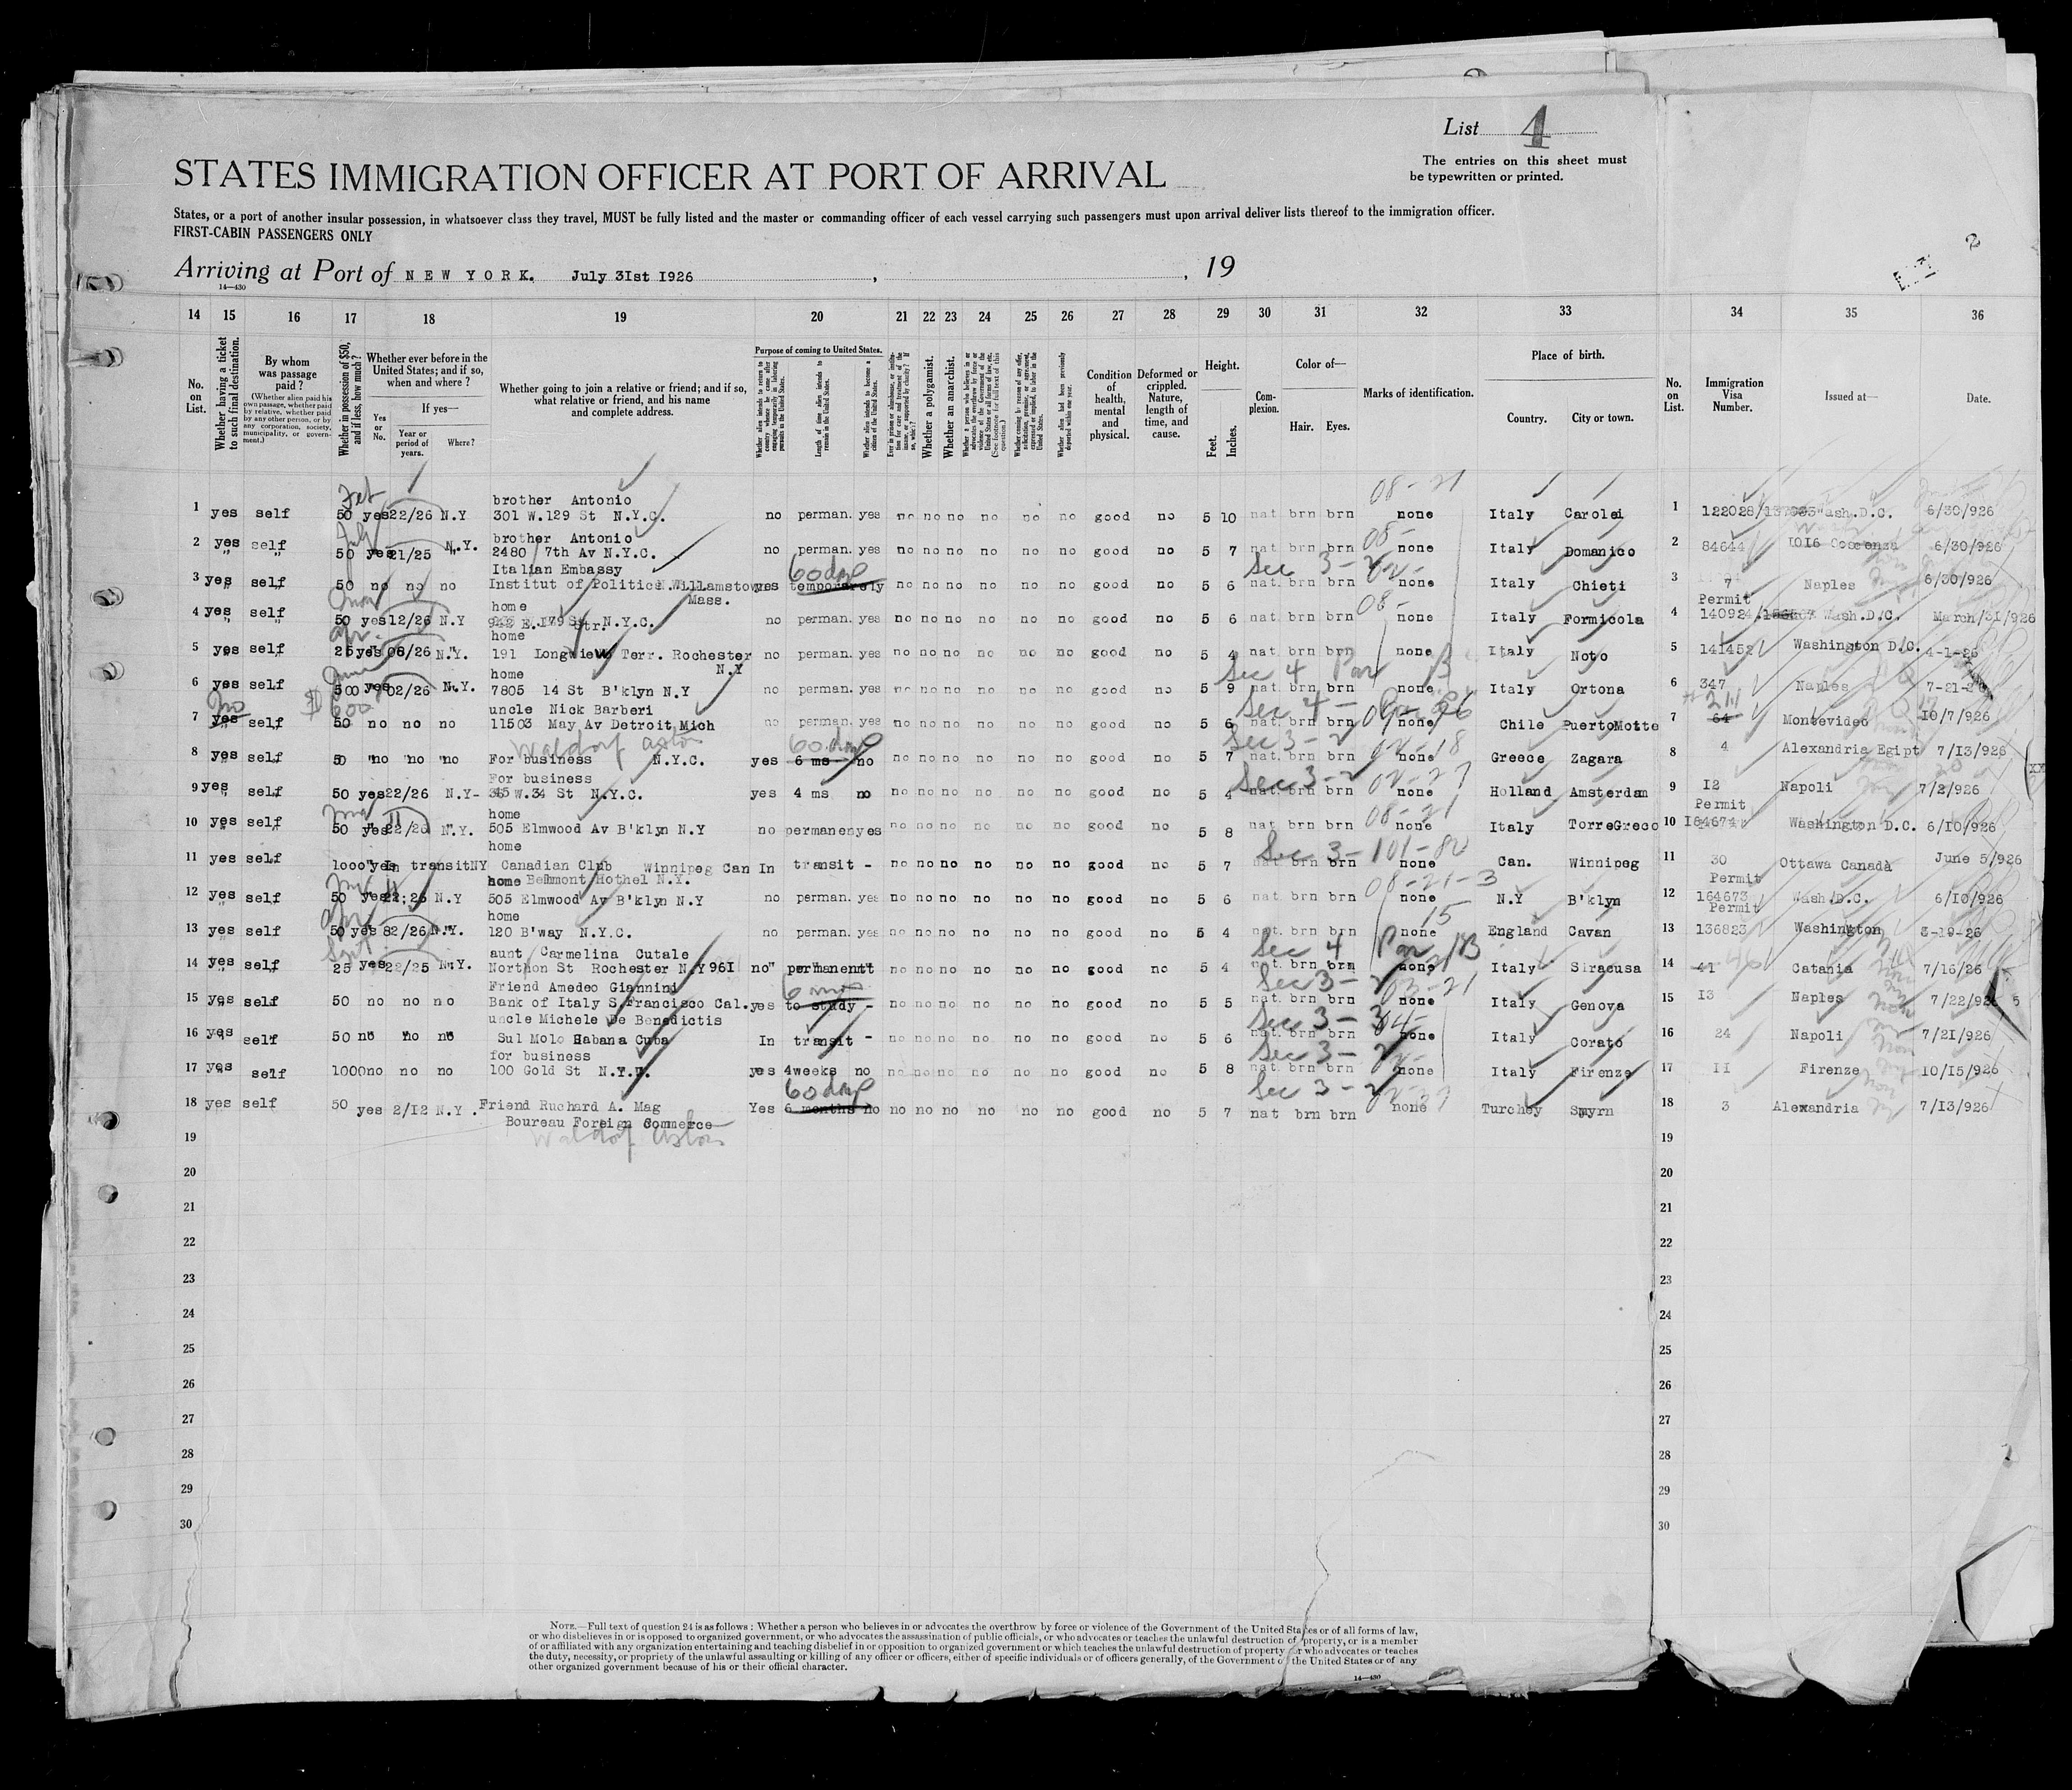 List 4
The entries on this sheet must
be typewritten or printed.
STATES IMMIGRATION OFFICER AT PORT OF ARRIVAL
States, or a port of another insular possession, in whatsoever class they travel, MUST be fully listed and the master or commanding officer of each vessel carrying such passengers must upon arrival deliver lists thereof to the immigration officer.
FIRST-CABIN PASSENGERS ONLY
2
Arriving at Port of NEW YORK. July 31st 1926 , , 19
14—430
14 15 16 17 18 19 20 21 22 23 24 25 26 27 28 29 30 31 32 33 34 35 36
No. on List.
Whether having a ticket to such final destination.
By whom was passage paid?
(Whether alien paid his own passage, whether paid by relative, whether paid by any other person, or by any corporation, society, municipality, or government.)
Whether in possession of $50, and if less, how much?
Whether ever before in the United States; and if so, when and where?
Yes or No.
If yes—
Year or period of years.
Where?
Whether going to join a relative or friend; and if so, what relative or friend, and his name and complete address.
Purpose of coming to United States.
Whether alien intends to return to country whence he came after engaging temporarily in laboring pursuits in the United States.
Length of time alien intends to remain in the United States.
Whether alien intends to become a citizen of the United States.
Whether a polygamist.
Whether an anarchist.
Condition of health, mental and physical.
Deformed or crippled. Nature, length of time, and cause.
Height.
Feet. Inches.
Complexion.
Color of—
Hair. Eyes.
Marks of identification.
Place of birth.
Country. City or town.
No. on List.
Immigration Visa Number.
Issued at—
Date.
1 yes self 50 yes 22/26 N.Y brother Antonio
301 W.129 St N.Y.C. no perman. yes no no no no no no good no 5 10 nat brn brn none Italy Carolei 1 122028 Wash.D.C. 6/30/926
2 yes self 50 yes 21/25 N.Y. brother Antonio
2480 7th Av N.Y.C. no perman. yes no no no no no no good no 5 7 nat brn brn none Italy Domanico 2 84644 1016 Cosenza 6/30/926
3 yes self 50 no no no Italian Embassy
Institut of Politics Wllamstown Mass. yes temporarely 60 days no no no no no no good no 5 6 nat. brn brn none Italy Chieti 3 7 Naples 6/30/926
4 yes self 50 yes 12/26 N.Y home
942 E. 179 St. N.Y.C. no perman. yes no no no no no no good no 5 6 nat brn brn none Italy Formicola 4 Permit 140924 Wash.D.C. March/31/926
5 yes self 25 yes 06/26 N.Y. home
191 Longwiew Terr. Rochester N.Y no perman. yes no no no no no no good no 5 4 nat brn brn none Italy Noto 5 141452 Washington D.C. 4-1-26
6 yes self 500 yes 02/26 N.Y. home
7805 14 St B'klyn N.Y no perman. yes no no no no no no good no 5 9 nat. brn brn none Sec 4 Par B Italy Ortona 6 347 Naples 7-21-26
7 yes no self $600 50 no no no uncle Nick Barberi
11503 May Av Detroit Mich no perman. yes no no no no no no good no 5 6 nat. brn brn none Sec 4 - Chile PuertoMotte 7 64 Montevideo 10/7/926
8 yes self 50 no no no Waldorf Astor
For business N.Y.C. yes 6 ms 60 days no no no no no no no good no 5 7 nat. brn brn none Sec 3-2 02-18 Greece Zagara 8 4 Alexandria Egipt 7/13/926
9 yes self 50 yes 22/26 N.Y- For business
345 W.34 St N.Y.C. yes 4 ms no no no no no no no good no 5 4 nat. brn brn none Sec 3-2 02-27 Holland Amsterdam 9 12 Napoli 7/2/926
10 yes self 50 yes 22/26 N.Y. home
505 Elmwood Av B'klyn N.Y no permanen yes no no no no no no good no 5 8 nat brn brn none 08-21 Italy TorreGreco 10 Permit 164674 Washington D.C. 6/10/926
11 yes self 1000 yes In transit NY home
Canadian Club Winnipeg Can In transit - no no no no no no good no 5 7 nat brn brn none Sec 3- Can. Winnipeg 11 30 Ottawa Canadà June 5/926
Belmont Hothel N.Y.
12 yes self 50 yes 22/26 N.Y home
505 Elmwood Av B'klyn N.Y no perman. yes no no no no no no good no 5 6 nat brn brn none 08-21-3 N.Y B'klyn 12 Permit 164673 Wash.D.C. 6/10/926
13 yes self 50 yes 82/26 N.Y. home
120 B'way N.Y.C. no perman. yes no no no no no no good no 5 4 nat. brn brn none 15 England Cavan 13 Permit 136823 Washington 3-19-26
14 yes self 25 yes 22/25 N.Y. aunt Carmelina Cutale
Northon St Rochester N.Y 961 no permanent no no no no no no good no 5 4 nat. brn brn none Sec 4 Par B Italy Siracusa 14 41 Catania 7/16/26
15 yes self 50 no no no Friend Amedeo Giannini
Bank of Italy S.Francisco Cal. yes to study 6 mos - no no no no no no good no 5 5 nat. brn brn none Sec 3-2 03-21 Italy Genova 15 13 Naples 7/22/926 5
16 yes self 50 no no no uncle Michele De Benedictis
Sul Molo Habana Cuba In transit - no no no no no no good no 5 6 nat. brn brn none Sec 3-3 04- Italy Corato 16 24 Napoli 7/21/926
17 yes self 1000 no no no for business
100 Gold St N.Y. yes 4weeks no no no no no no no good no 5 8 nat. brn brn none Sec 3-2 Italy Firenze 17 11 Firenze 10/15/926
18 yes self 50 yes 2/12 N.Y. Friend Ruchard A. Mag
Boureau Foreign Commerce Yes 6 months 60 days no no no no no no no good no 5 7 nat brn brn none Sec 3-2 Turchey Smyrn 18 3 Alexandria 7/13/926
Waldorf Astor
19 19
20 20
21 21
22 22
23 23
24 24
25 25
26 26
27 27
28 28
29 29
30 30
NOTE.—Full text of question 24 is as follows: Whether a person who believes in or advocates the overthrow by force or violence of the Government of the United States or of all forms of law,
or who disbelieves in or is opposed to organized government, or who advocates the assassination of public officials, or who advocates or teaches the unlawful destruction of property, or is a member
of or affiliated with any organization entertaining and teaching disbelief in or opposition to organized government or which teaches the unlawful destruction of property or who advocates or teaches
the duty, necessity, or propriety of the unlawful assaulting or killing of any officer or officers, either of specific individuals or of officers generally, of the Government of the United States or of any
other organized government because of his or their official character.
14—430